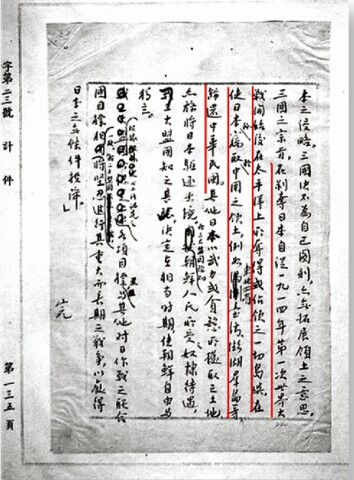 本之侵略。三國決不為自己圖利,亦無拓展領土之意思。
三國之宗旨,在剝奪日本自從一九一四年第一次世界大
戰開始後在太平洋上所奪得或佔領之一切島嶼,在
使日本所竊取中國之領土,例如東北四省臺灣澎湖群島等
歸還中華民國。其他日本以武力或貪慾所攫取之土地
亦務將日本驅逐出境。朝鮮人民所受奴隸待遇
三大盟國知之甚 決定在相當時期使朝鮮自由與
獨立。
各項目標與其他對日作戰之聯合
國目標相同,將堅忍進行其重大而長期之戰爭,以獲得
日本之無條件投降。」
字第二三號 計 件 第一三五頁